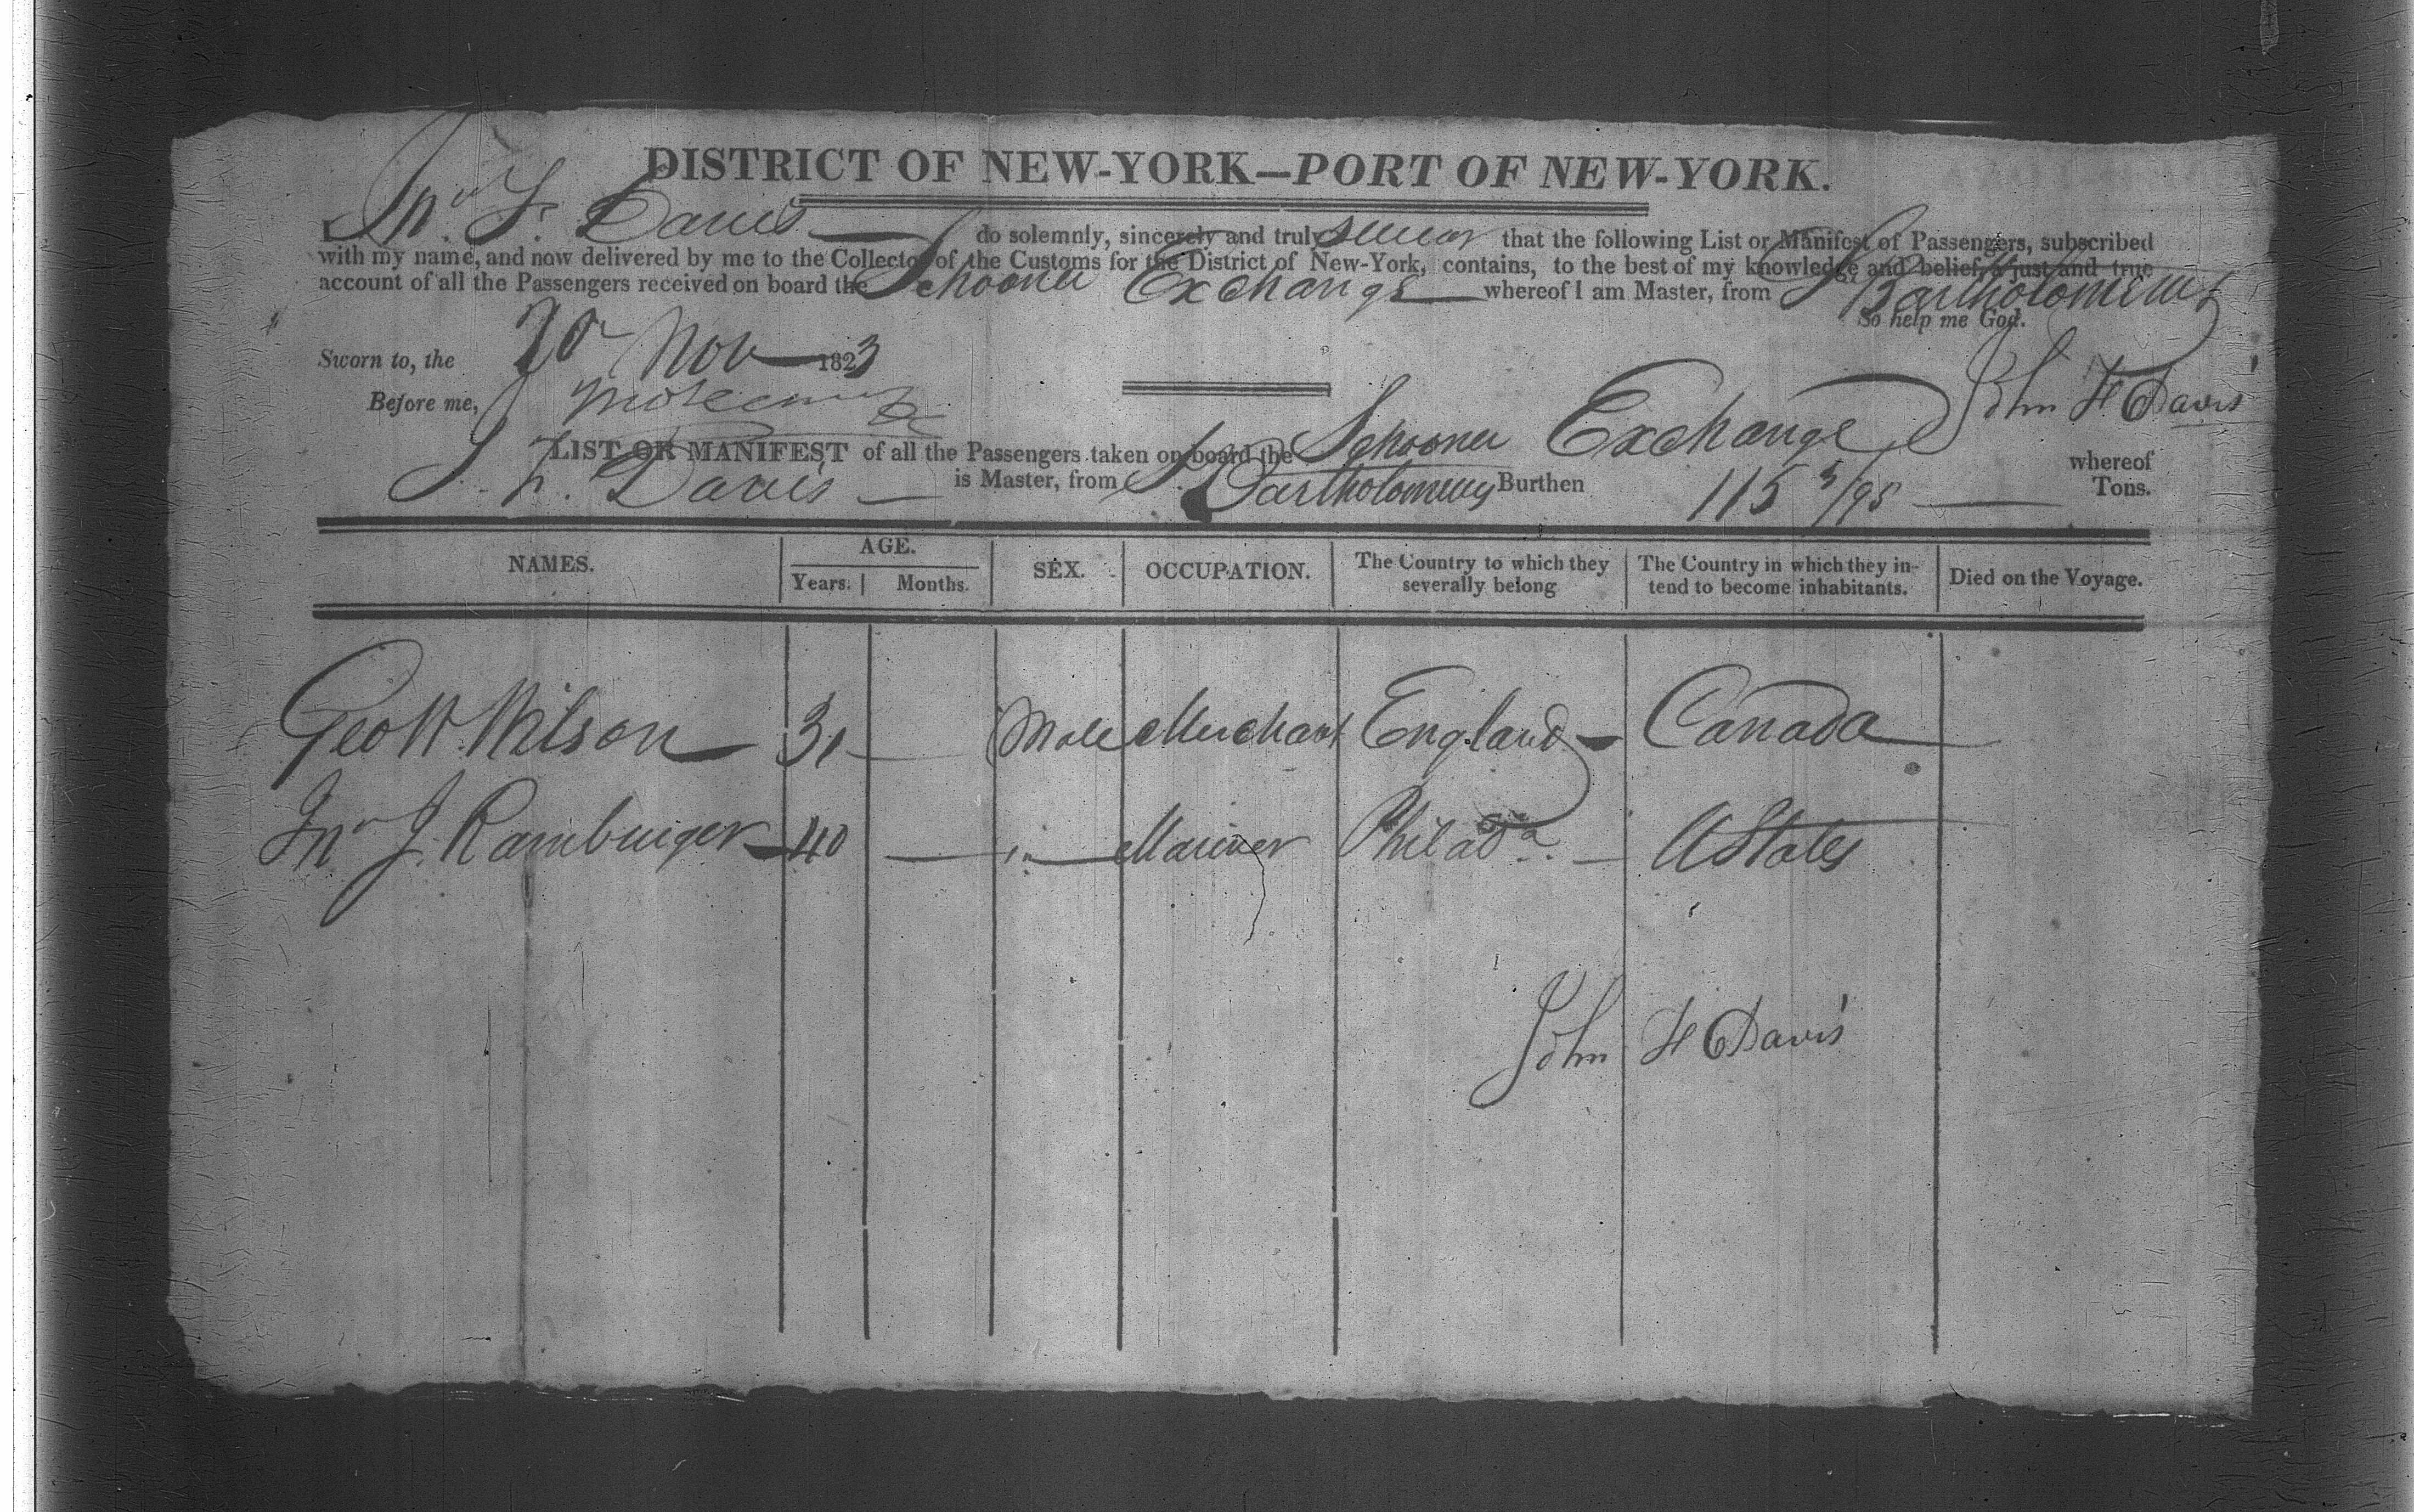 DISTRICT OF NEW-YORK—PORT OF NEW-YORK.
I Jno F. Davis do solemnly, sincerely and truly swear that the following List or Manifest of Passengers, subscribed
with my name, and now delivered by me to the Collector of the Customs for the District of New-York, contains, to the best of my knowledge and belief, a just and true
account of all the Passengers received on board the Schooner Exchange whereof I am Master, from St Bartholomews
So help me God.
Sworn to, the 20 Nov 1823
John F Davis
Before me,
LIST OR MANIFEST of all the Passengers taken on board the Schooner Exchange whereof
J. F. Davis is Master, from St Bartholomews Burthen 115 5/95 Tons.
NAMES. AGE. Years. Months. SEX. OCCUPATION. The Country to which they severally belong The Country in which they intend to become inhabitants. Died on the Voyage.
Geo W. Wilson 31 Male Merchant England Canada
Jno J. Ramburger 40 " Mariner Philada UStates
John F Davis